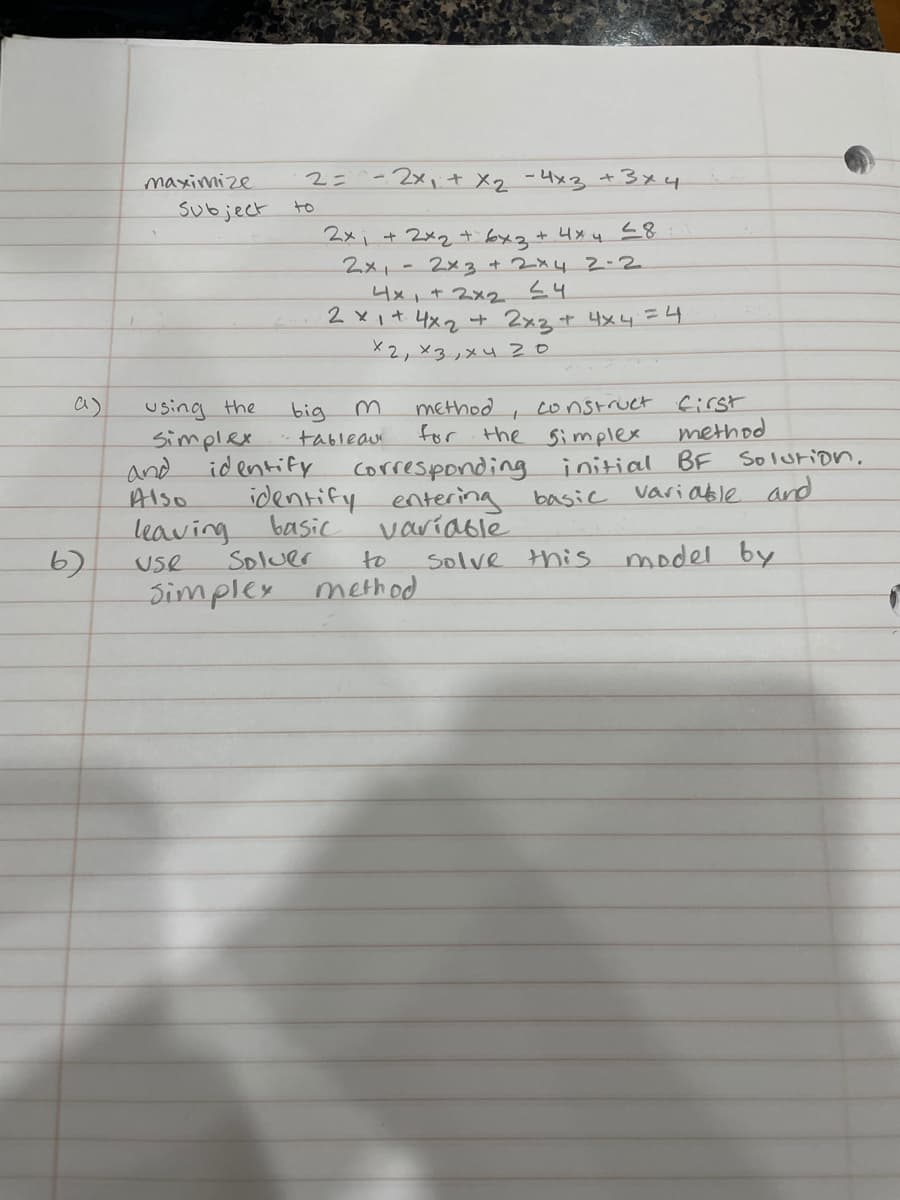 maximize 2 = -2x₁ + x₂ -4x₃ +3x4
subject to
2x₁ + 2x₂ + 6x₃ + 4x₄ ≤8
2x₁ - 2x₃ + 2x4 ≥-2
4x₁ + 2x2 ≤4
2x₁+ 4x₂ + 2x₃+ 4x4 =4
x₂, x₃, x4 ≥0
a) using the big m method, construct first
simplex tableau for the simplex method
and identify corresponding initial BF Solution.
Also identify entering basic variable and
leaving basic variable
b) use Solver to solve this model by
simplex method